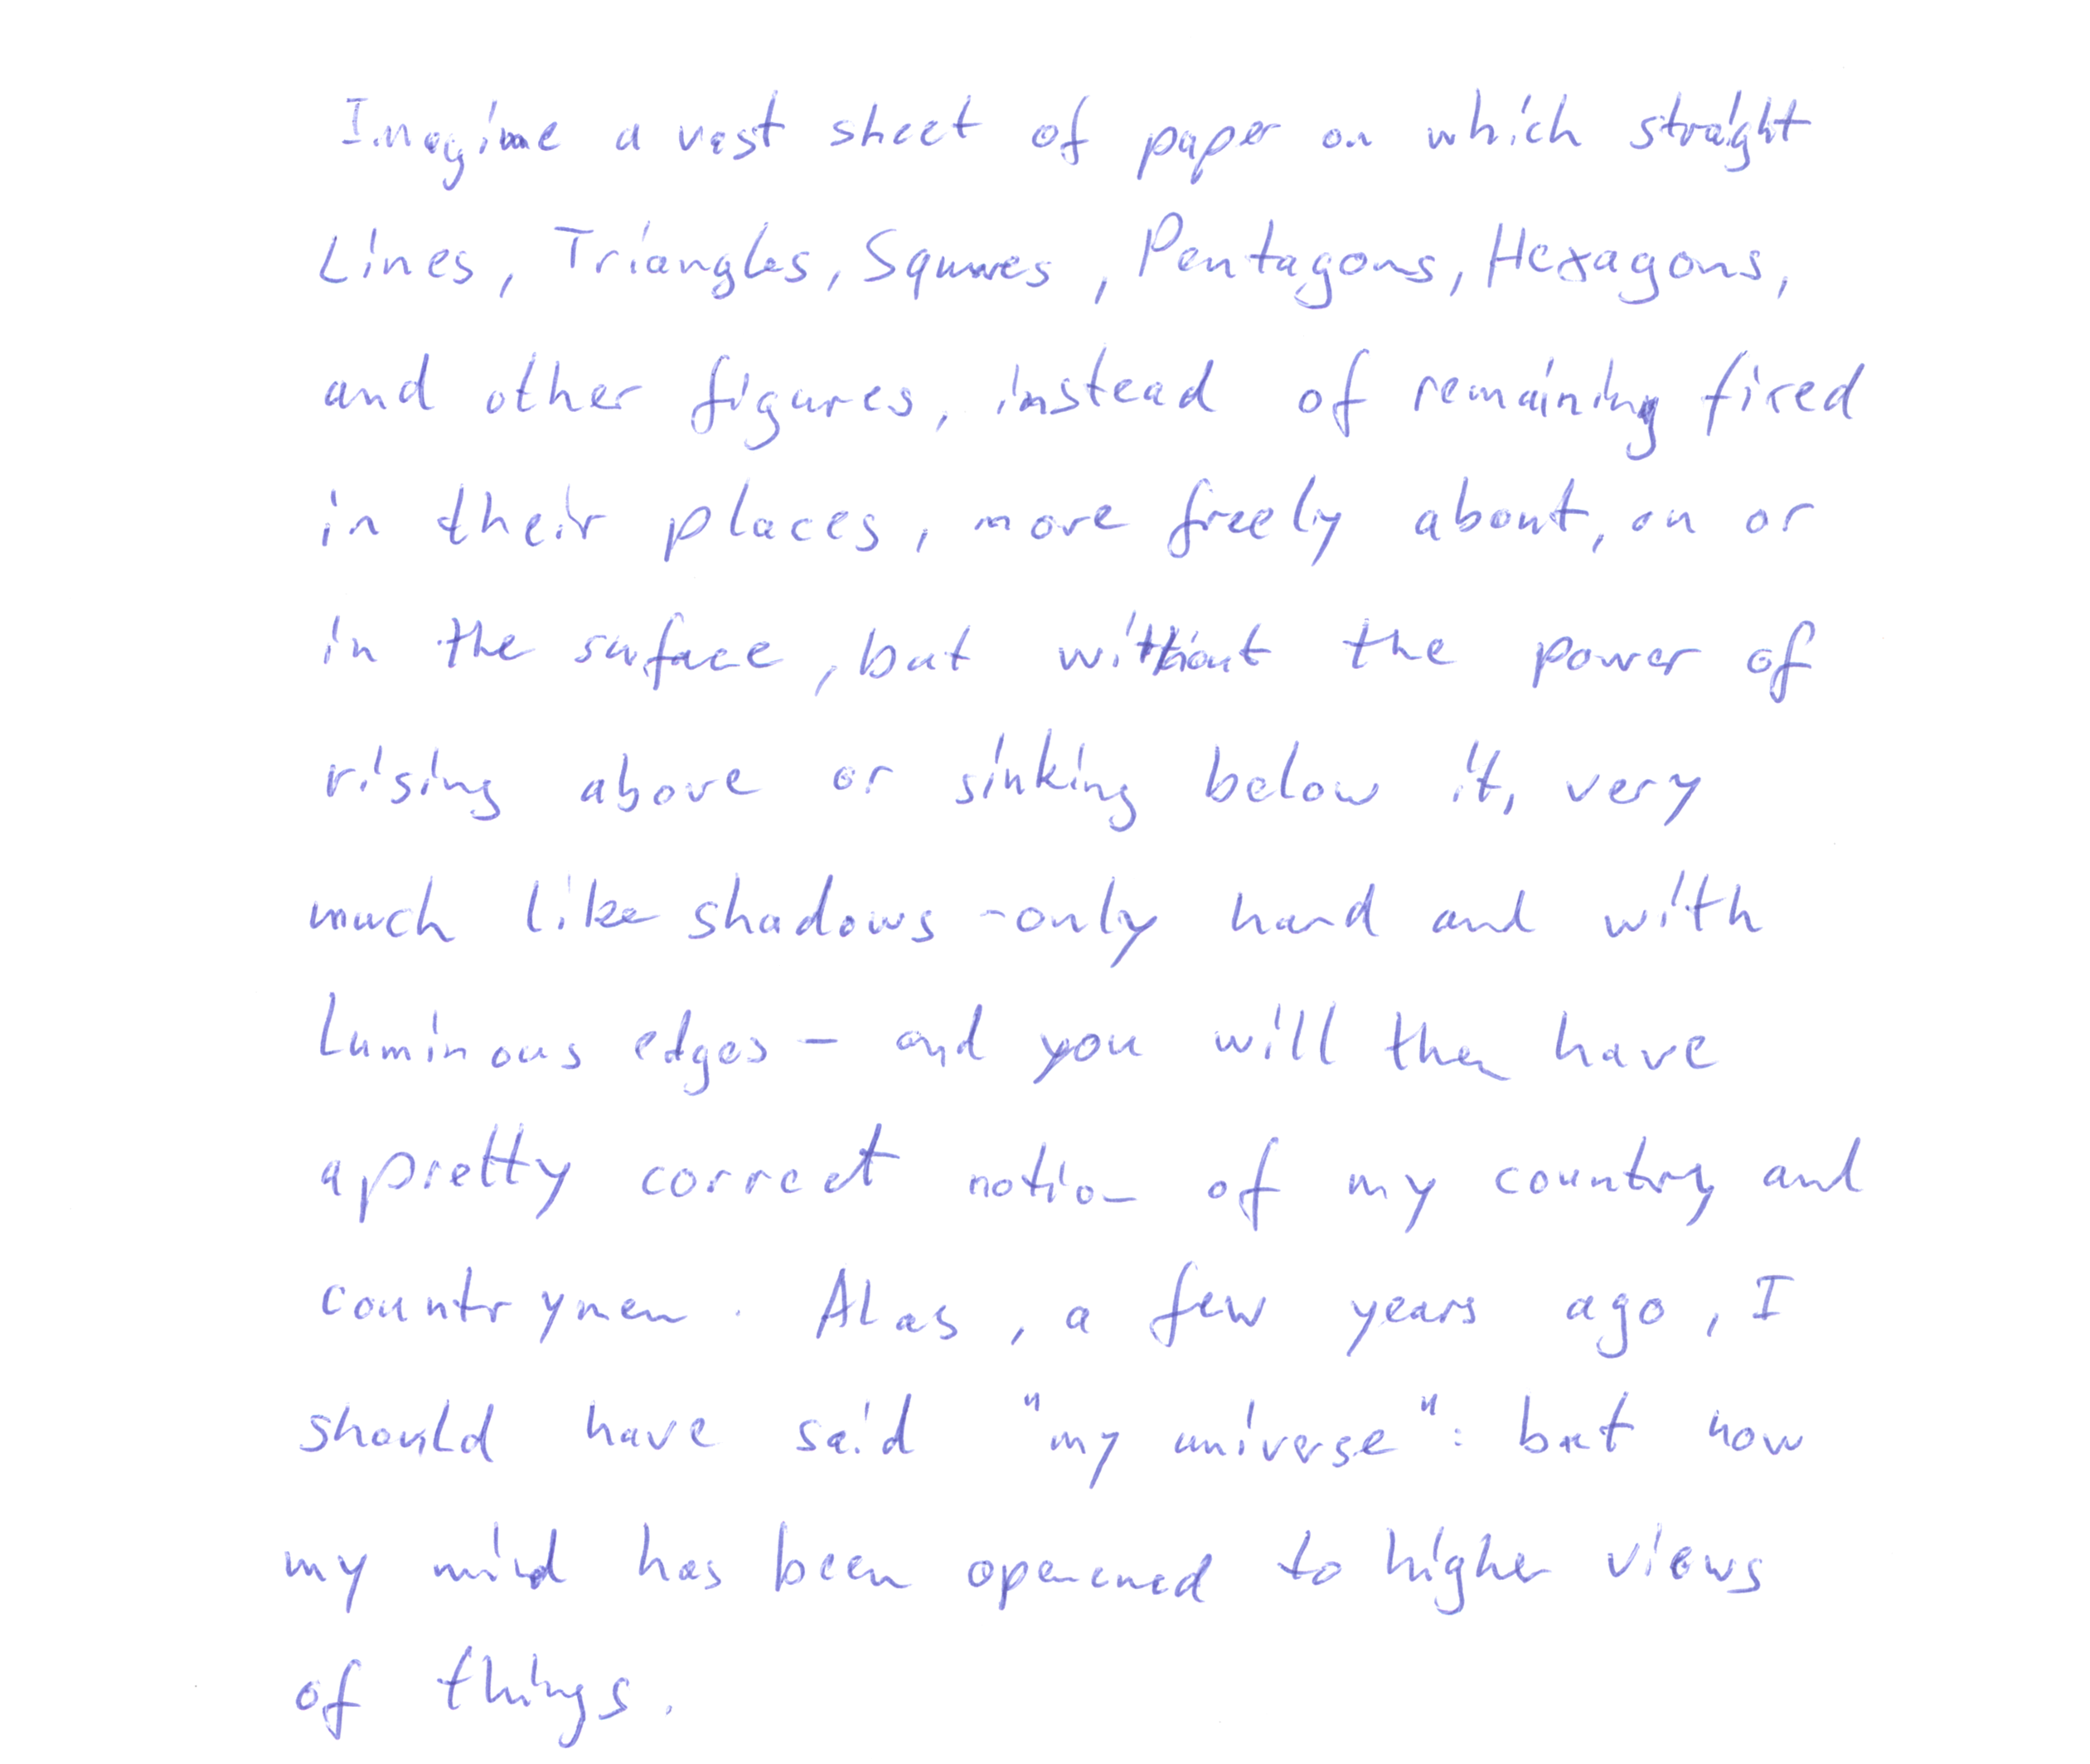 Imagine a vast sheet of paper on which straight
Lines, Triangles, Squares, Pentagons, Hexagons,
and other figures, instead of remaining fixed
in their places, move freely about, on or
in the surface, but without the power of
rising above or sinking below it, very
much like shadows - only hard and with
luminous edges - and you will then have
a pretty correct notion of my country and
countrymen. Alas, a few years ago, I
should have said "my universe": but now
my mind has been opened to higher views
of things.